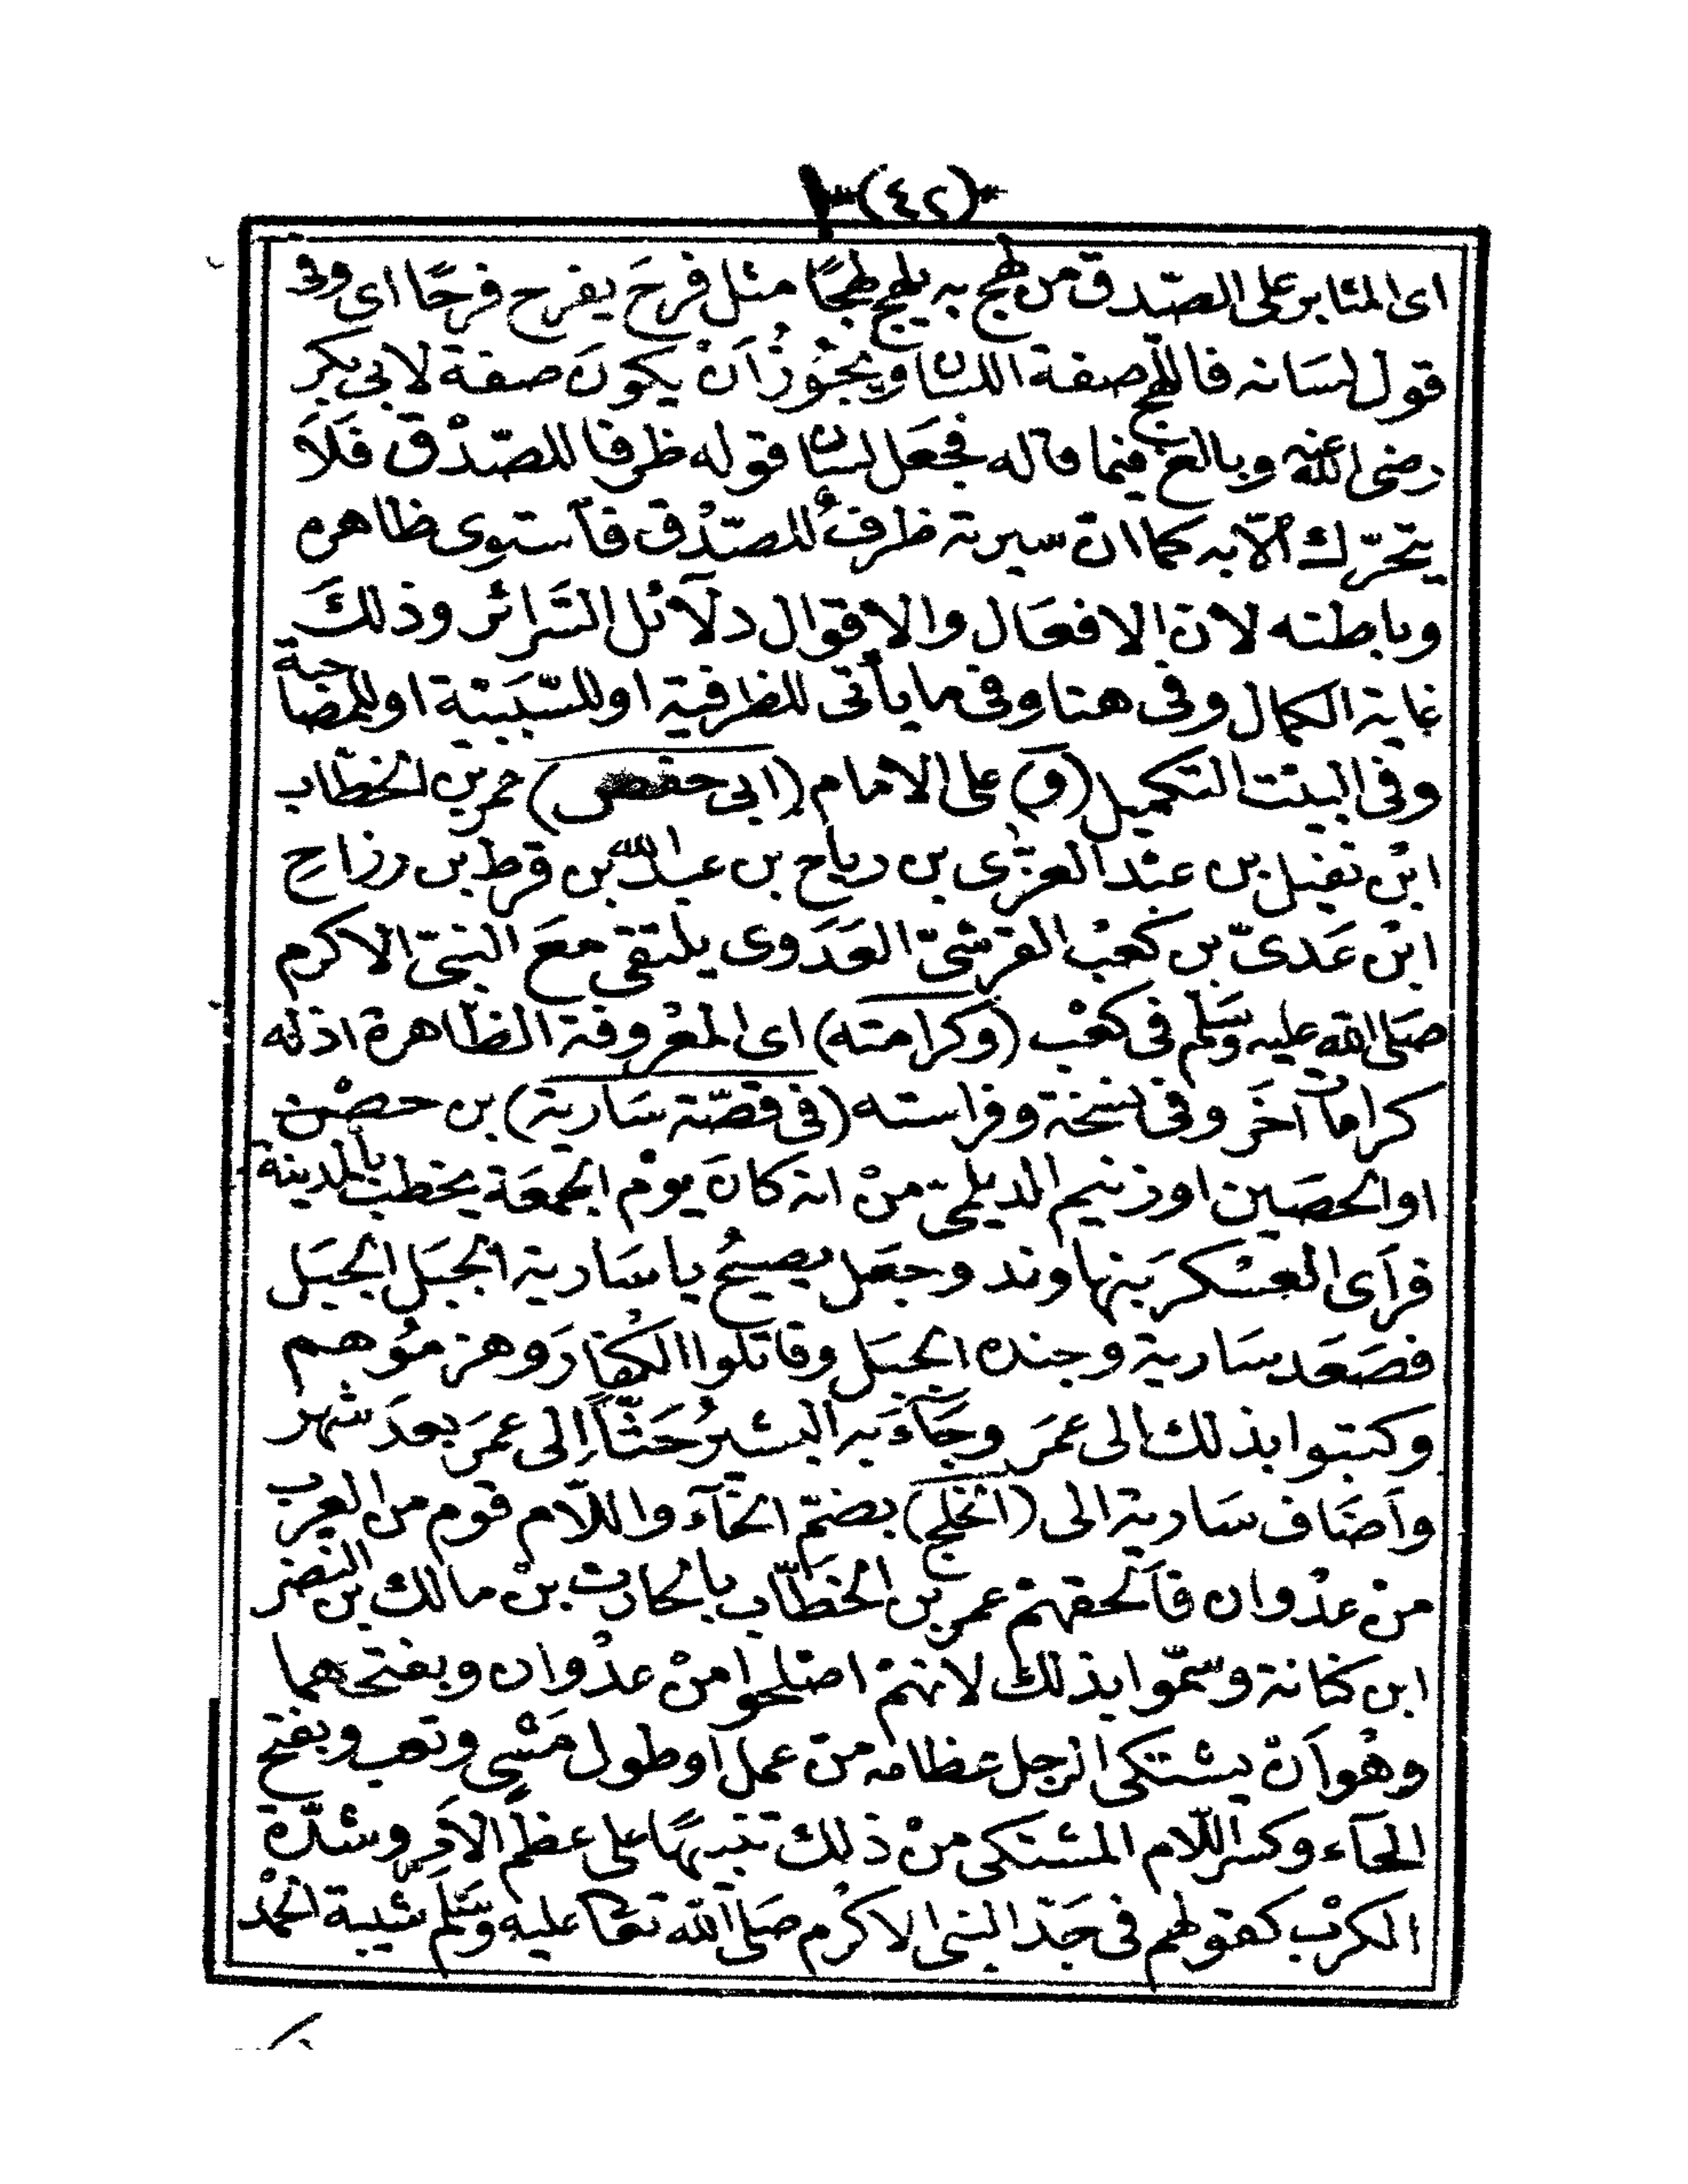 *(٤٢)*
اى المثابر على الصّدق من لهج به يلهج لهجًا مثل فرحَ يفرح فرحًا اى وفى
قول لسَانه فاللّهج صفة اللسان ويجُوزُ اَنْ يكونَ صفة لابى بكر
رضى الله عنه وبالغ فيما قاله فجعَل لسان قوله ظرفا للصّدْق فَلاَ
يتحرّك اِلاّ به كما انّ سيرته ظرفُ للصّدْق فاَستوى ظاهره
وباطنه لانّ الافعَال والاقوال دلآئل السَّرائر وذلكَ
غاية الكمال وفى هنا وفى ما يأتى للظرفية او للسّبَبيّة او للمصَاحبة
وفى البيْت التكميل (و) على الامام (ابى حفص) عمر بن الخطّاب
ابْن نفيل بن عبْد العزّى بن رياح بن عبد الله بن قرط بن رزاحِ
ابْن عَدىّ بن كعْب القرشىّ العَدَوى يلتقى معَ النبىّ الاكرم
صَلى الله عليه وسَلم فى كعْب (وكرامته) اى المعْروفة الظّاهرة اذ له
كرامات اُخَر وفى نسْخة وفراسته (فى قصّة سَارية) بن حصْن
او الحصَين او زنيم الديلمىّ منْ انه كانَ يوْم الجمعَة يخطب بالمدينة
فرآَى العسْكرَ بنهاوند وجعَل يصيحُ يا سَارية الجبَل الجبَل
فصَعَد سَارية وجنده الجبَل وقاتلوا الكُفارَ وهزمُوهم
وكتبوا بذلك الى عمَر وجَآءَ به البشيرُ حَثّاً اِلى عمَر بعدَ شهْر
واَضَاف سَارية الى (الخلج) بضمّ الخآء واللّام قوم من العرب
منْ عدْوان فاَلحقهمْ عمر بن الخطّاب بالحارث بنْ مالك بن النضر
ابن كنانة وسمّوا بذلك لانهمْ اختلجوا منْ عدْوان وبفتحهما
وهُو اَنْ يشتكى الرجل عظامه منْ عمل اَو طول مَشْىٍ وتعب وبفتح
الخآء وكسر اللّام المشتكى منْ ذلك تنبيهًا على عظم الاَمر وشدّة
الكرْب كقولهم فى جَدّ النبى الاكرُم صَلى الله تعَالى عليه وسَلم شيبة الحمْد